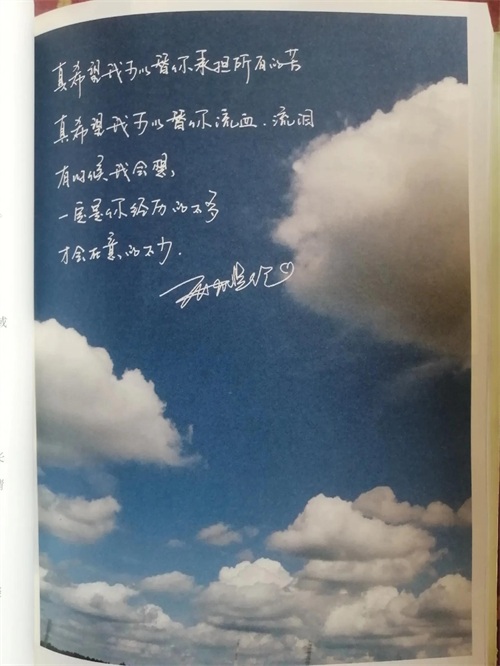 真希望我可以替你承担所有的苦
真希望我可以替你流血.流泪
有时候我会想,
一定是你经历的不多
才会在意的不少.